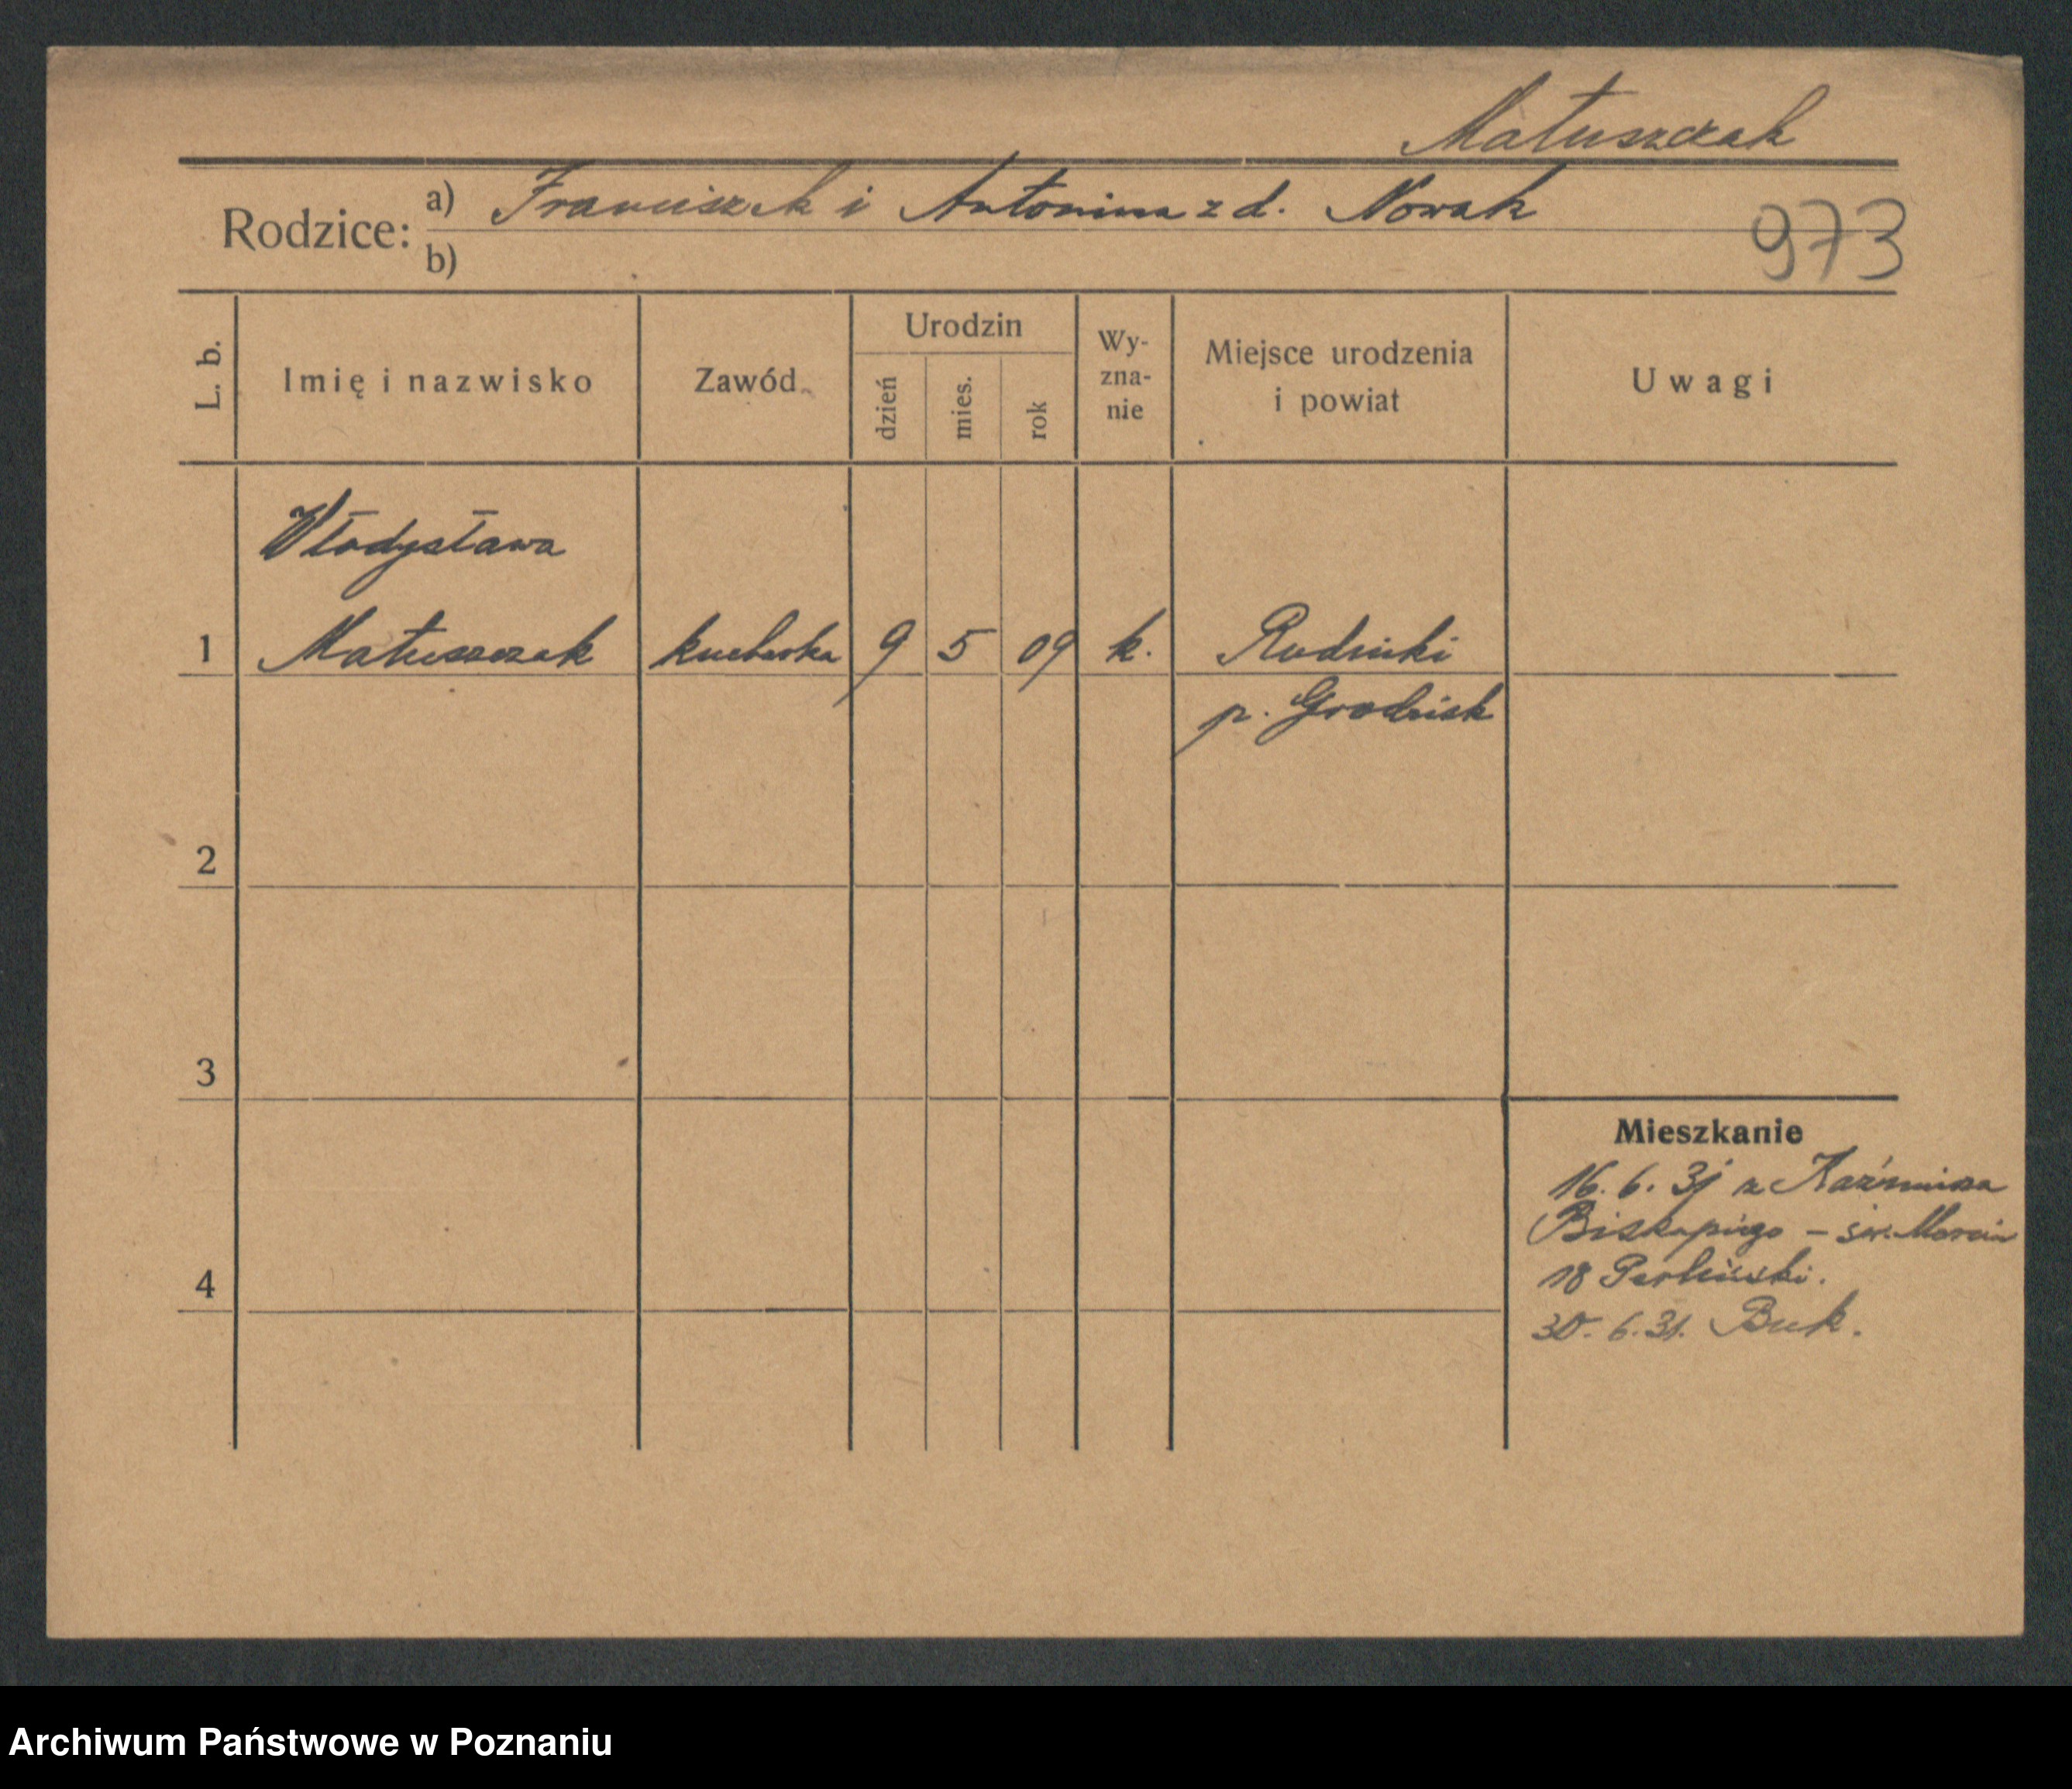 Matuszczak
Rodzice: a) Franciszek i Antonina z d. Nowak
b)
973
L. b. Imię i nazwisko Zawód Urodzin dzień mies. rok Wy-zna-nie Miejsce urodzenia i powiat Uwagi
Władysława
1 Matuszczak kucharka 9 5 09 k. Rudniki
p. Grodzisk
2
3
Mieszkanie
16. 6. 31 z Kaźmierza
Biskupiego – św. Marcin
4
18 Perliński.
30. 6. 31. Buk.
Archiwum Państwowe w Poznaniu